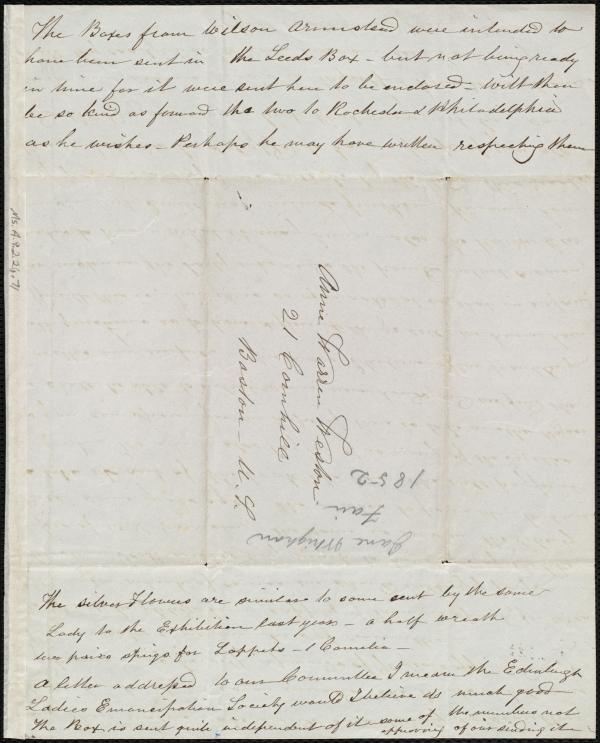 The Boxes from Wilson Armistead were intended to
have been sent in the Leeds Box - but not being ready
in time for it were sent here to be enclosed - Wilt thou
be so kind as forward the two to Rochester & Philadelphia
as he wishes - Perhaps he may have written respecting them
Ms.A.9.2.26.71
Anne Warren Weston
21 Cornhill
Boston - U.S.
Jane Wigham
Fair
1852
The silver Flowers are similar to some sent by the same
Lady to the Exhibition last year - a half wreath
two pairs sprigs for Lappets - 1 Camelia -
A letter addressed to our Committee I mean the Edinburgh
Ladies Emancipation Society would I believe do much good -
The Box is sent quite independent of it some of the members not
approving of our sending it